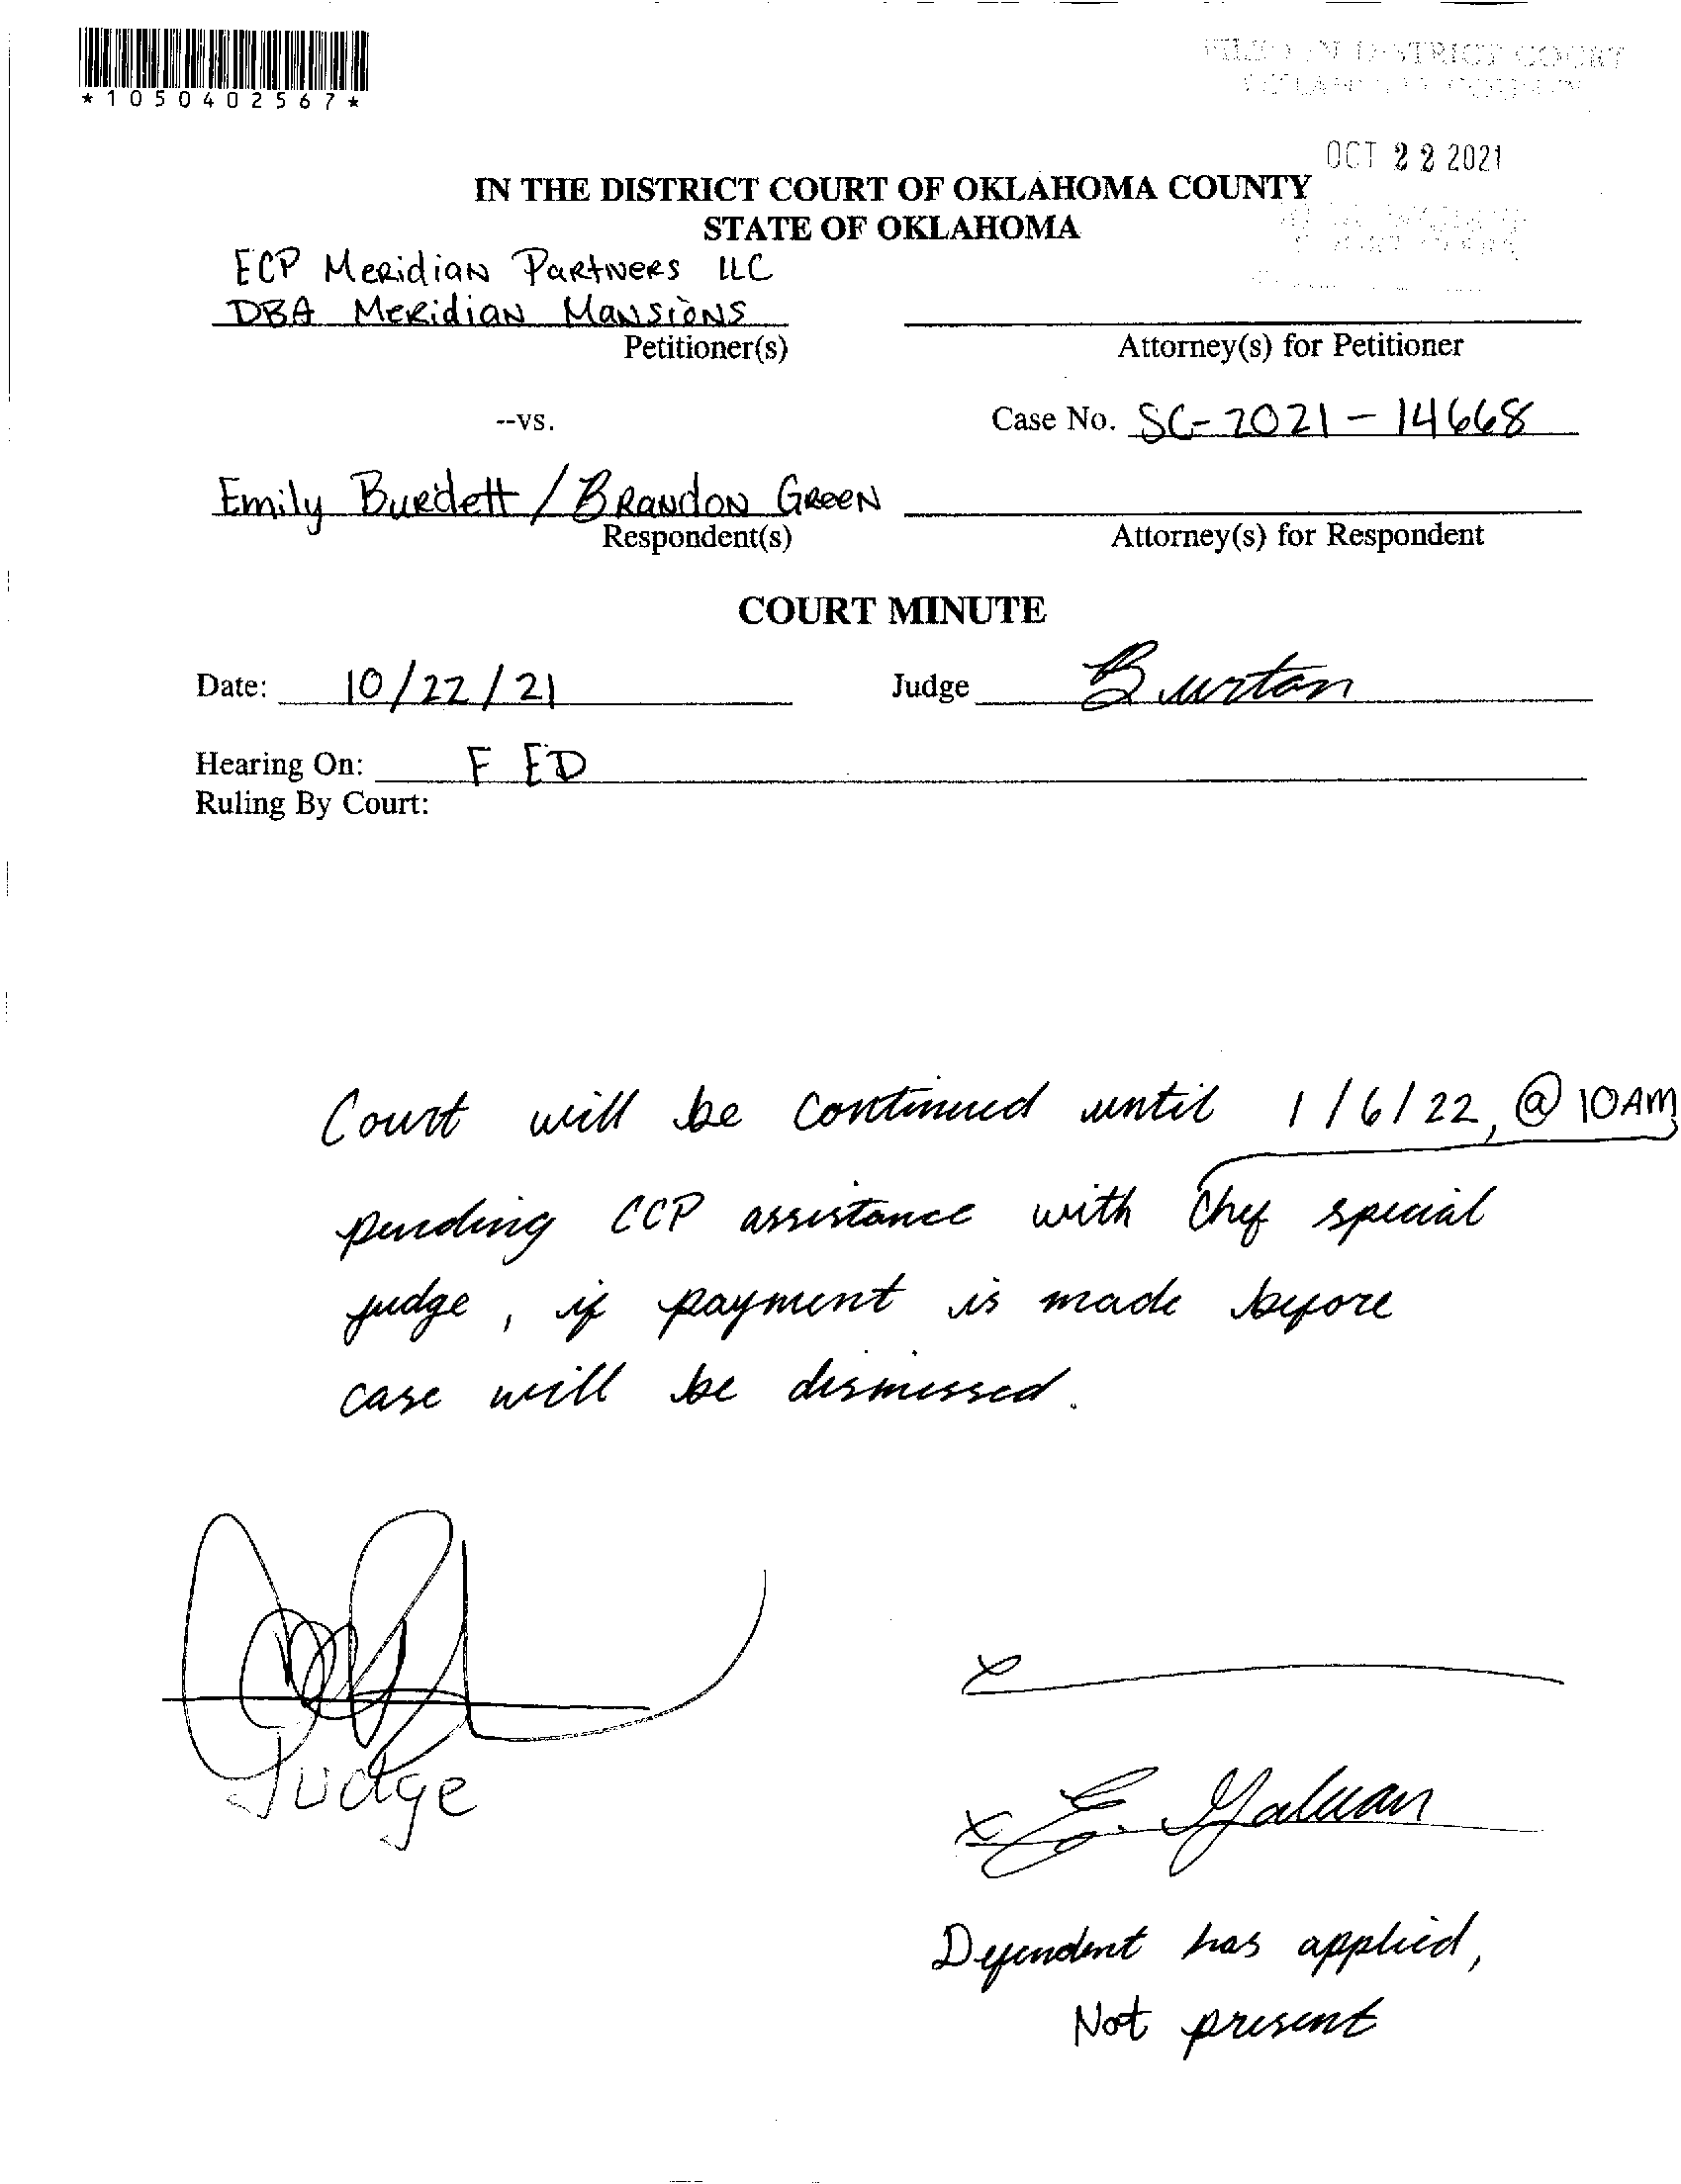 *1050402567*
OCT 22 2021
IN THE DISTRICT COURT OF OKLAHOMA COUNTY
STATE OF OKLAHOMA
ECP Meridian Partners LLC
DBA Meridian Mansions
Petitioner(s)
Attorney(s) for Petitioner
--vs.
Case No. SC-2021-14668
Emily Burdett / Brandon Green
Respondent(s)
Attorney(s) for Respondent
COURT MINUTE
Date: 10/22/21 Judge Burton
Hearing On: F ED
Ruling By Court:
Court will be continued until 1/6/22, @ 10AM
pending CCP assistance with Chef special
judge, if payment is made before
case will be dismissed.
Judge
x
x E. Galuan
Defendent has applied,
Not present